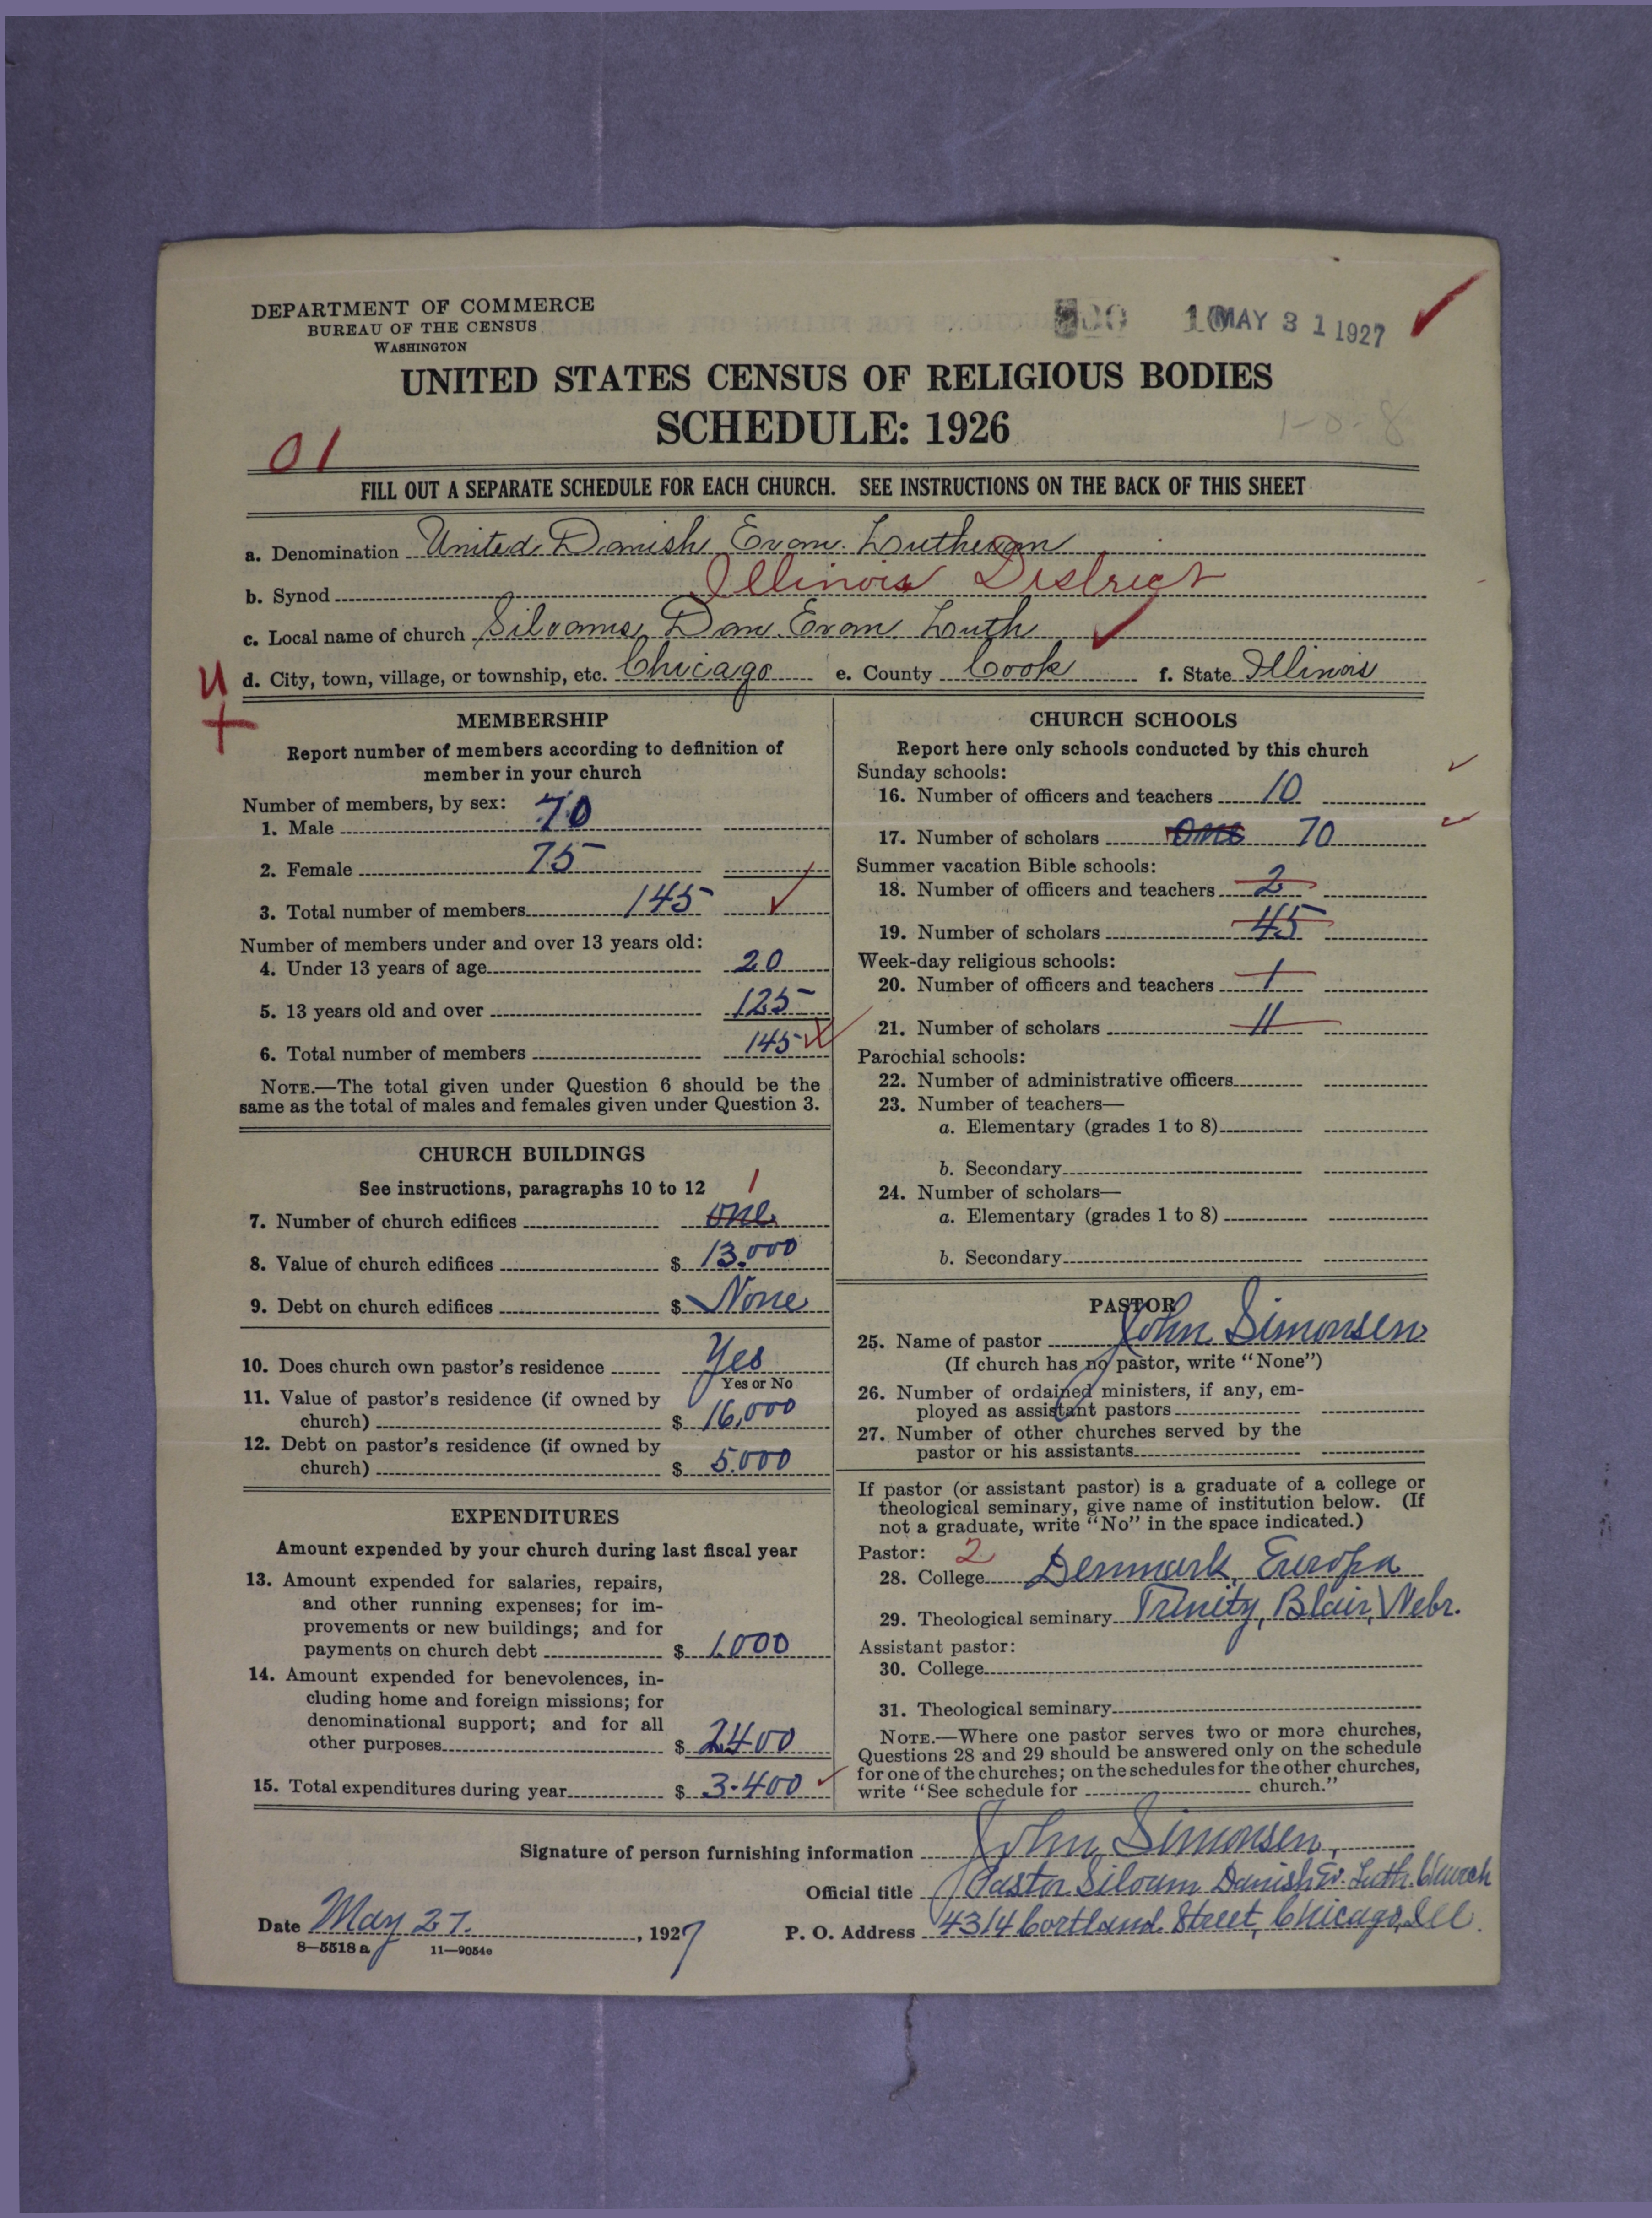 DEPARTMENT OF COMMERCE
BUREAU OF THE CENSUS
WASHINGTON
MAY 31 1927
UNITED STATES CENSUS OF RELIGIOUS BODIES
SCHEDULE: 1926
1-0-8
01
FILL OUT A SEPARATE SCHEDULE FOR EACH CHURCH. SEE INSTRUCTIONS ON THE BACK OF THIS SHEET
a. Denomination United Danish Evan. Lutheran
b. Synod Illinois District
c. Local name of church Siloams Dan. Evan Luth
U
d. City, town, village, or township, etc. Chicago e. County Cook f. State Illinois
MEMBERSHIP
Report number of members according to definition of
member in your church
Number of members, by sex:
1. Male 70
2. Female 75
3. Total number of members 145
Number of members under and over 13 years old:
4. Under 13 years of age 20
5. 13 years old and over 125
6. Total number of members 145
NOTE.—The total given under Question 6 should be the
same as the total of males and females given under Question 3.
CHURCH BUILDINGS
See instructions, paragraphs 10 to 12
1
7. Number of church edifices one
8. Value of church edifices $ 13.000
9. Debt on church edifices $ None
10. Does church own pastor's residence Yes
Yes or No
11. Value of pastor's residence (if owned by
church) $ 16,000
12. Debt on pastor's residence (if owned by
church) $ 5.000
EXPENDITURES
Amount expended by your church during last fiscal year
13. Amount expended for salaries, repairs,
and other running expenses; for im-
provements or new buildings; and for
payments on church debt $ 1.000
14. Amount expended for benevolences, in-
cluding home and foreign missions; for
denominational support; and for all
other purposes $ 2400
15. Total expenditures during year $ 3.400
CHURCH SCHOOLS
Report here only schools conducted by this church
Sunday schools:
16. Number of officers and teachers 10
17. Number of scholars one 70
Summer vacation Bible schools:
18. Number of officers and teachers 2
19. Number of scholars 45
Week-day religious schools:
20. Number of officers and teachers 1
21. Number of scholars 11
Parochial schools:
22. Number of administrative officers
23. Number of teachers—
a. Elementary (grades 1 to 8)
b. Secondary
24. Number of scholars—
a. Elementary (grades 1 to 8)
b. Secondary
PASTOR
25. Name of pastor John Simonsen
(If church has no pastor, write "None")
26. Number of ordained ministers, if any, em-
ployed as assistant pastors
27. Number of other churches served by the
pastor or his assistants
If pastor (or assistant pastor) is a graduate of a college or
theological seminary, give name of institution below. (If
not a graduate, write "No" in the space indicated.)
Pastor: 2
28. College Denmark, Europa
29. Theological seminary Trinity, Blair, Nebr.
Assistant pastor:
30. College
31. Theological seminary
NOTE.—Where one pastor serves two or more churches,
Questions 28 and 29 should be answered only on the schedule
for one of the churches; on the schedules for the other churches,
write "See schedule for church."
Signature of person furnishing information John Simonsen,
Official title Pastor Siloam Danish Ev. Luth. Church
Date May 27. , 1927 P. O. Address 4314 Cortland Street, Chicago, Ill.
8—5518 a 11—9054c